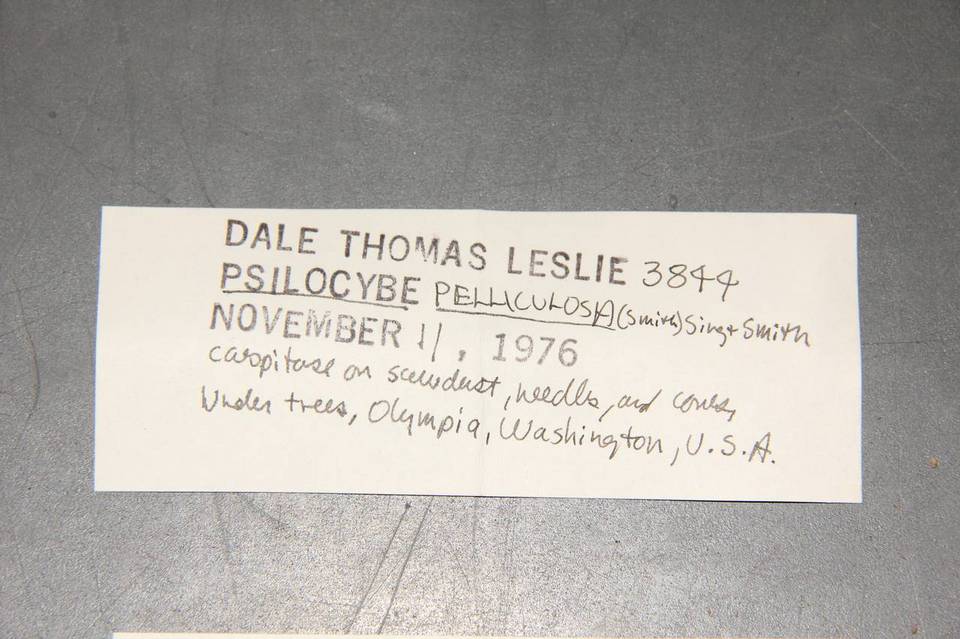 DALE THOMAS LESLIE 3844
PSILOCYBE PELLICULOSA (Smith) Sing + Smith
NOVEMBER 11, 1976
caespitose on sawdust, needles, and cones,
Under trees, Olympia, Washington, U.S.A.